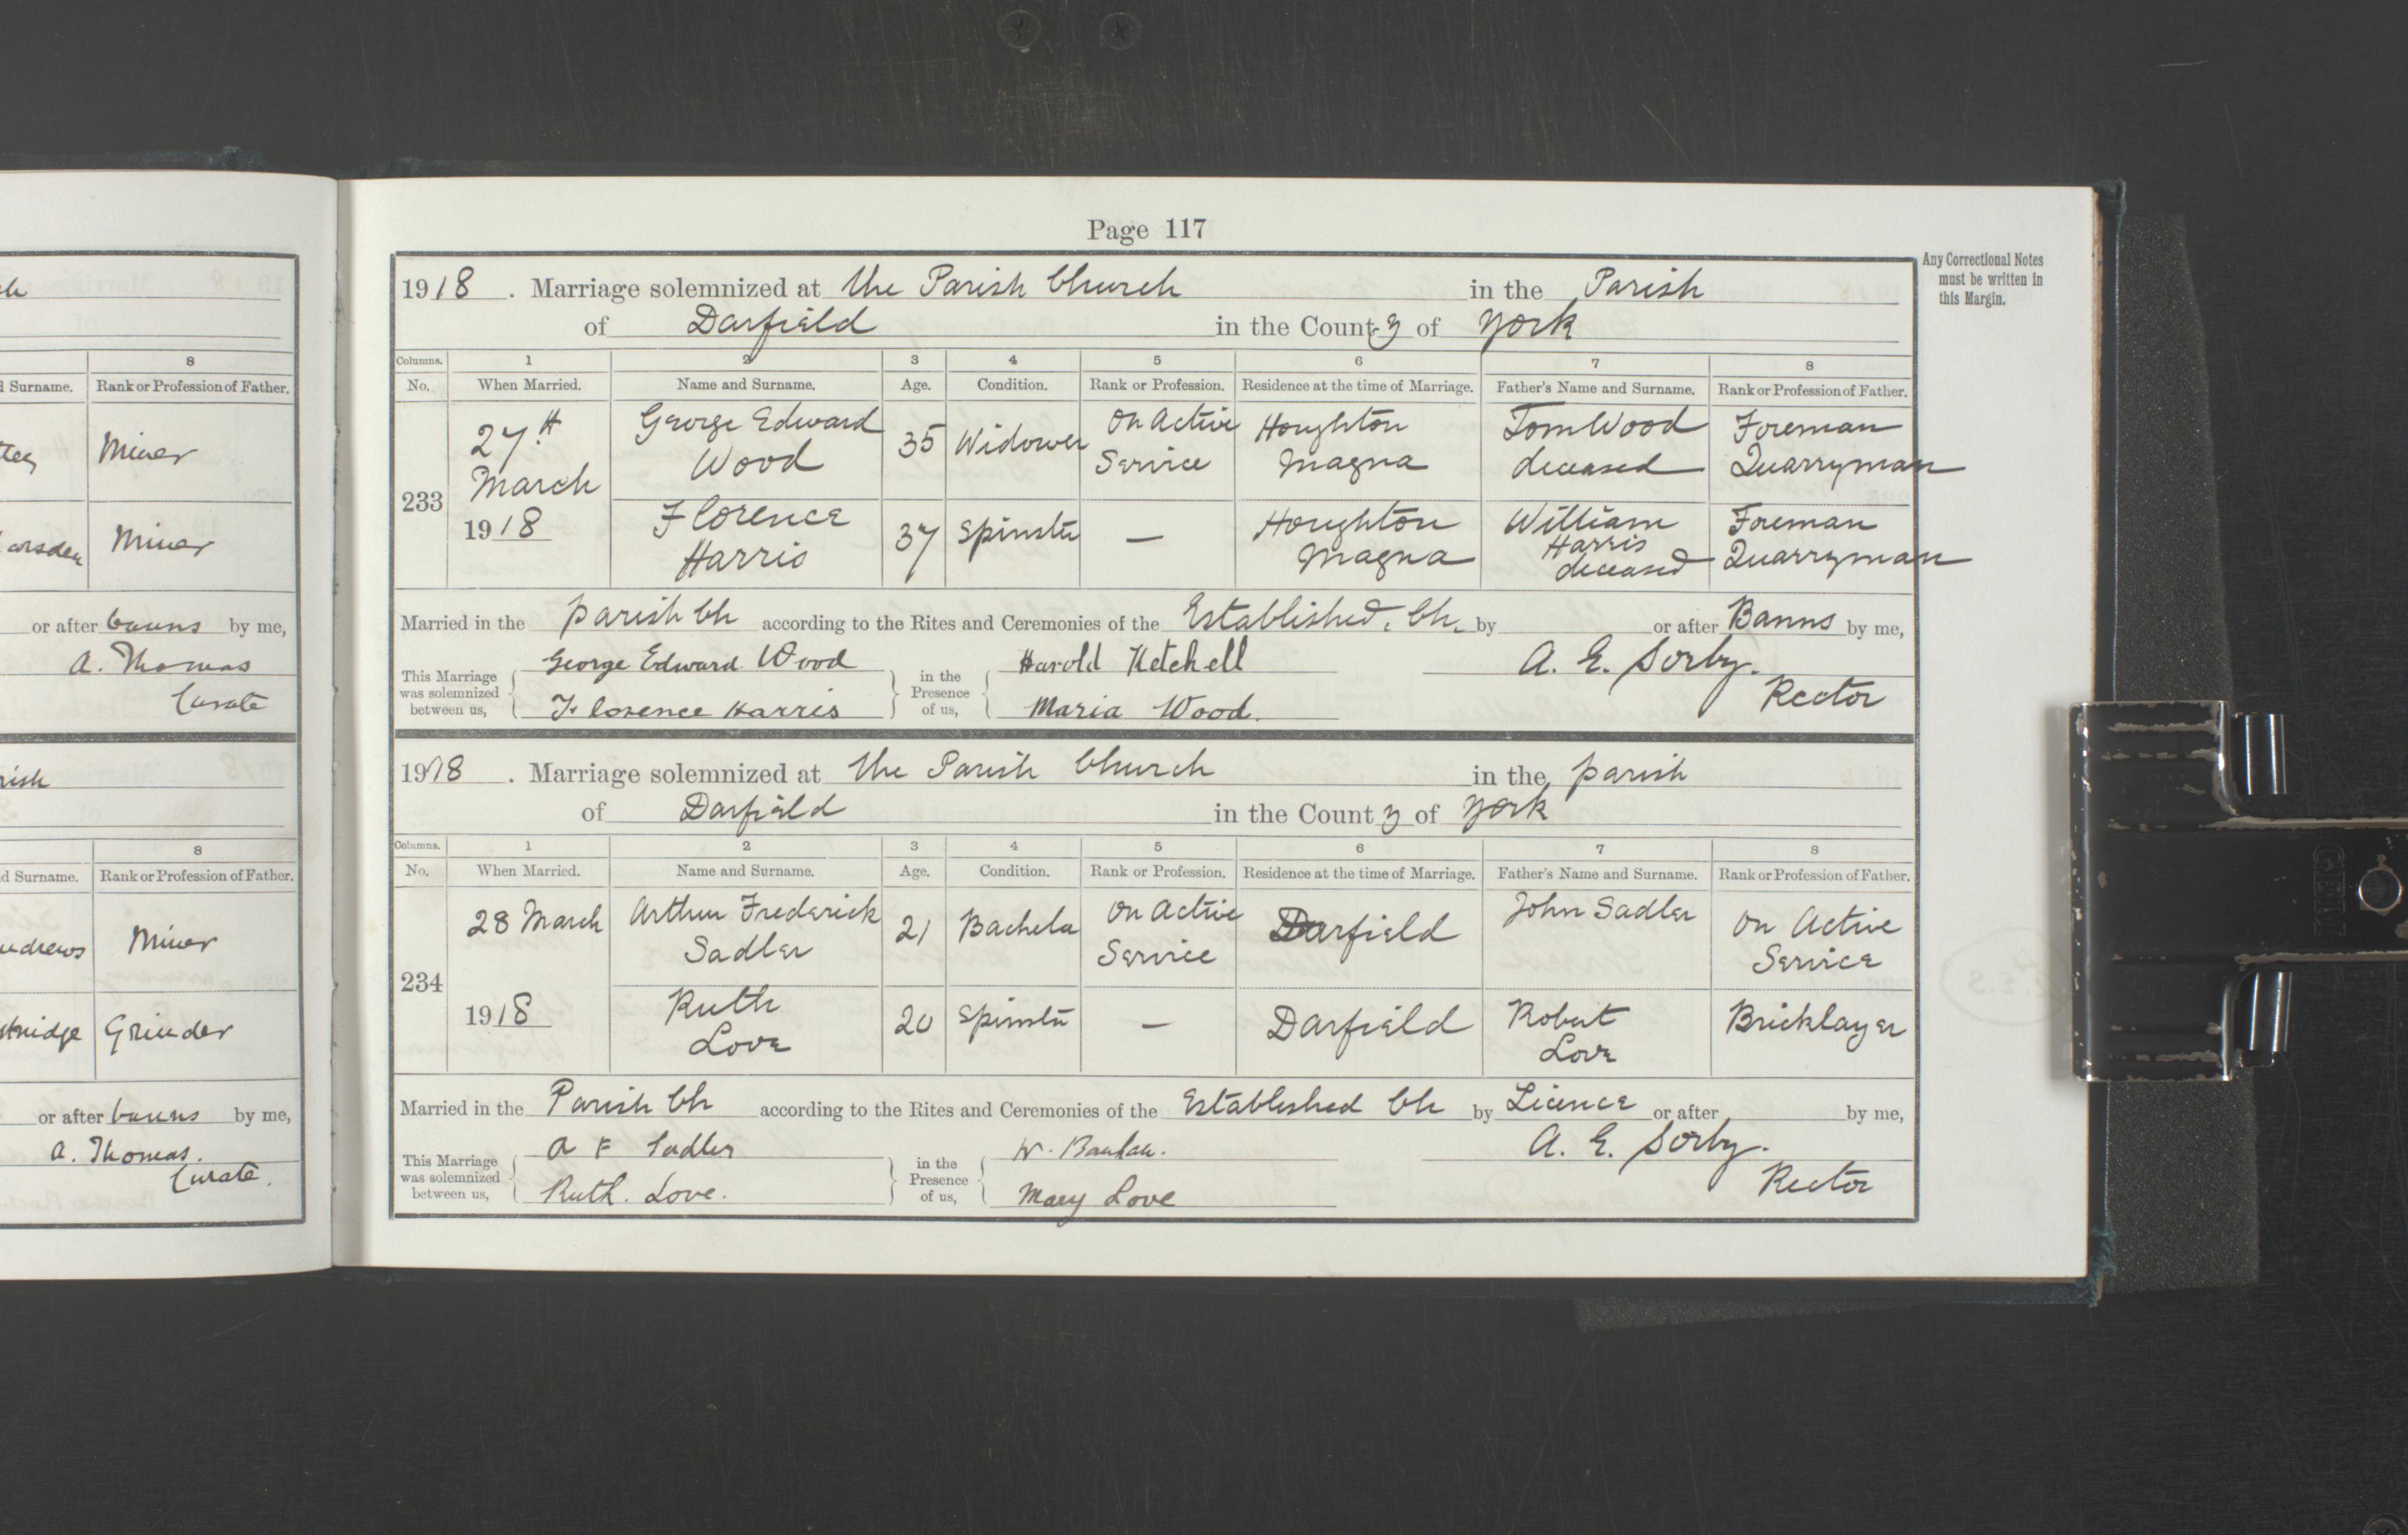 Page 117
Any Correctional Notes
must be written in
this Margin.
1918. Marriage solemnized at the Parish Church in the Parish
of Darfield in the County of York
Columns. 1 2 3 4 5 6 7 8
No. When Married. Name and Surname. Age. Condition. Rank or Profession. Residence at the time of Marriage. Father's Name and Surname. Rank or Profession of Father.
233
27th
March
1918
George Edward
Wood
35
Widower
On Active
Service
Houghton
Magna
Tom Wood
deceased
Foreman
Quarryman
Florence
Harris
37
Spinster
—
Houghton
Magna
William
Harris
deceased
Foreman
Quarryman
Married in the parish Ch according to the Rites and Ceremonies of the Established Ch. by or after Banns by me,
This Marriage
was solemnized
between us,
George Edward Wood
Florence Harris
in the
Presence
of us,
Harold Ketchell
Maria Wood.
A. E. Sorby.
Rector
1918. Marriage solemnized at the Parish Church in the parish
of Darfield in the County of York
Columns. 1 2 3 4 5 6 7 8
No. When Married. Name and Surname. Age. Condition. Rank or Profession. Residence at the time of Marriage. Father's Name and Surname. Rank or Profession of Father.
234
28 March
1918
Arthur Frederick
Sadler
21
Bachelor
On Active
Service
Darfield
John Sadler
On Active
Service
Ruth
Love
20
Spinster
—
Darfield
Robert
Love
Bricklayer
Married in the Parish Ch according to the Rites and Ceremonies of the Established Ch by Licence or after by me,
This Marriage
was solemnized
between us,
A F Sadler
Ruth. Love.
in the
Presence
of us,
W.
Mary Love
A. E. Sorby.
Rector
8
Surname. Rank or Profession of Father.
Miner
Miner
or after banns by me,
A. Thomas
Curate
8
Surname. Rank or Profession of Father.
Miner
Grinder
or after banns by me,
A. Thomas.
Curate.